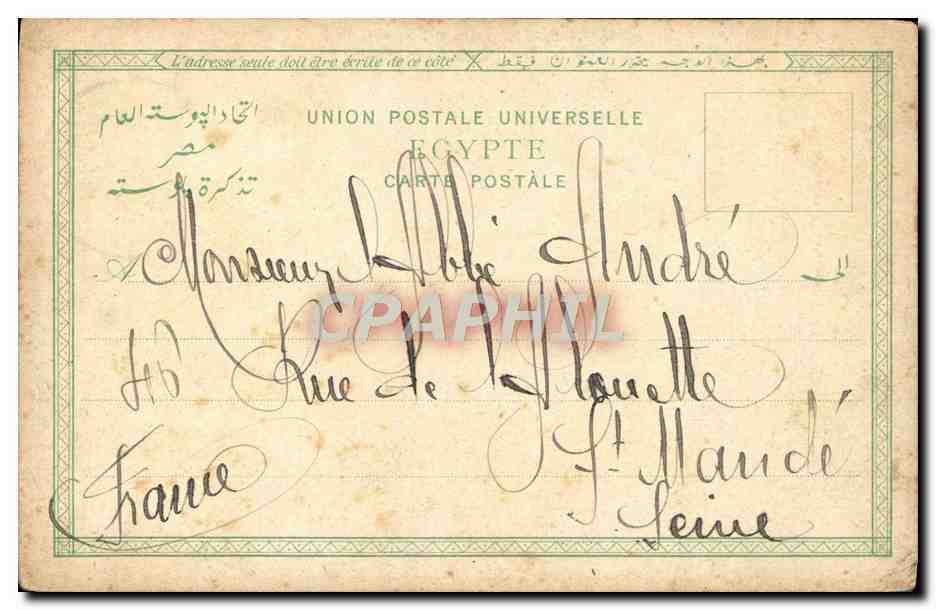 L'adresse seule doit être écrite de ce côté
بهذا الوجه يتحرر العنوان فيقط
اتحاد الپوسته العام
مصر
تذكرة پوسته
UNION POSTALE UNIVERSELLE
EGYPTE
CARTE POSTALE
A Monsieur l'Abbé André
الى
CPAPHIL
46 Rue de l'Alouette
St Mandé
Seine
France